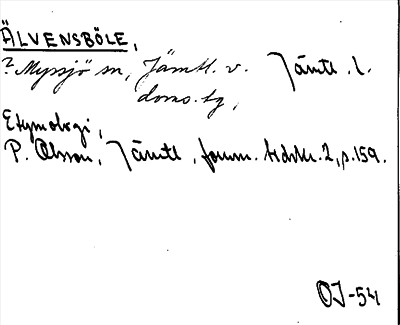 ÄLVENSBÖLE,
? Myssjö sn, Jämtl. v. Jämtl. l.
doms.tg,
Etymologi,
P. Olsson, Jämtl. fornm. tidskr. 2, s. 159.
OJ-54